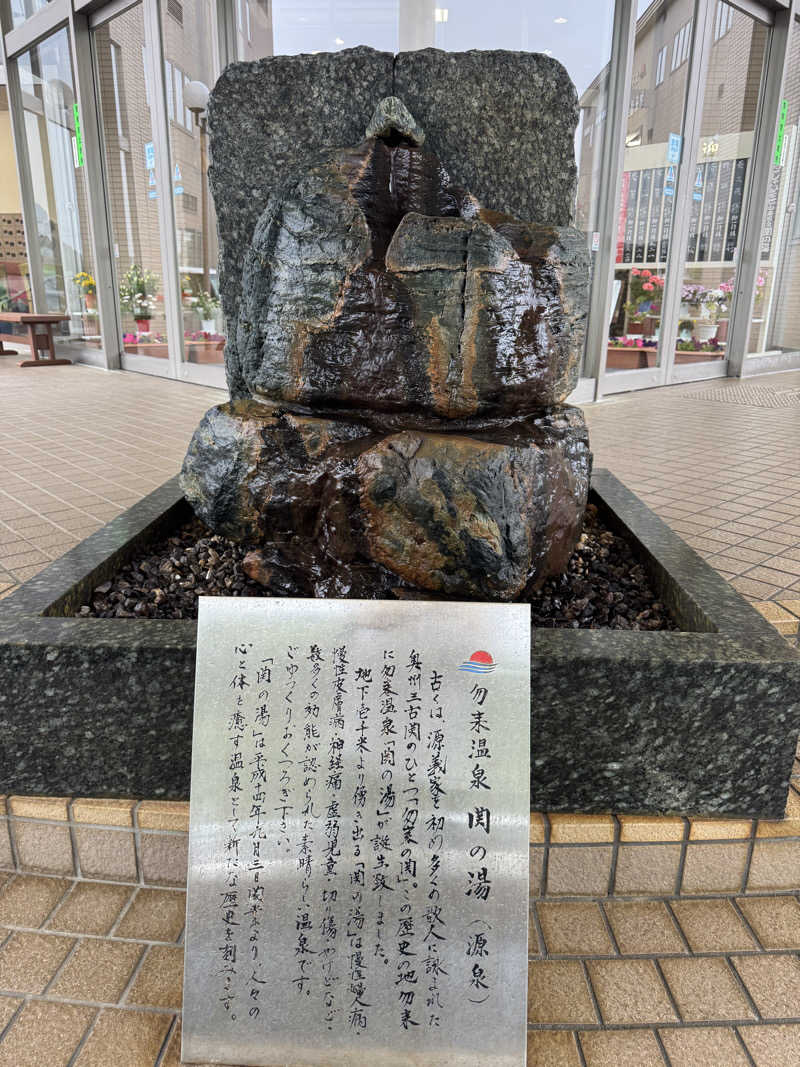 勿来温泉 関の湯(源泉)
古くは、源義家を初め多くの歌人に詠まれた
奥州三古関のひとつ「勿来の関」。この歴史の地勿来
に勿来温泉「関の湯」が誕生致しました。
地下壱千米より湧き出る「関の湯」は慢性婦人病・
慢性皮膚病・神経痛・虚弱児童・切り傷・やけどなど・
数多くの効能が認められた素晴らしい温泉です。
ごゆっくりおくつろぎ下さい。
「関の湯」は平成十四年九月三日開業より、人々の
心と体を癒す温泉として新たな歴史を刻みます。